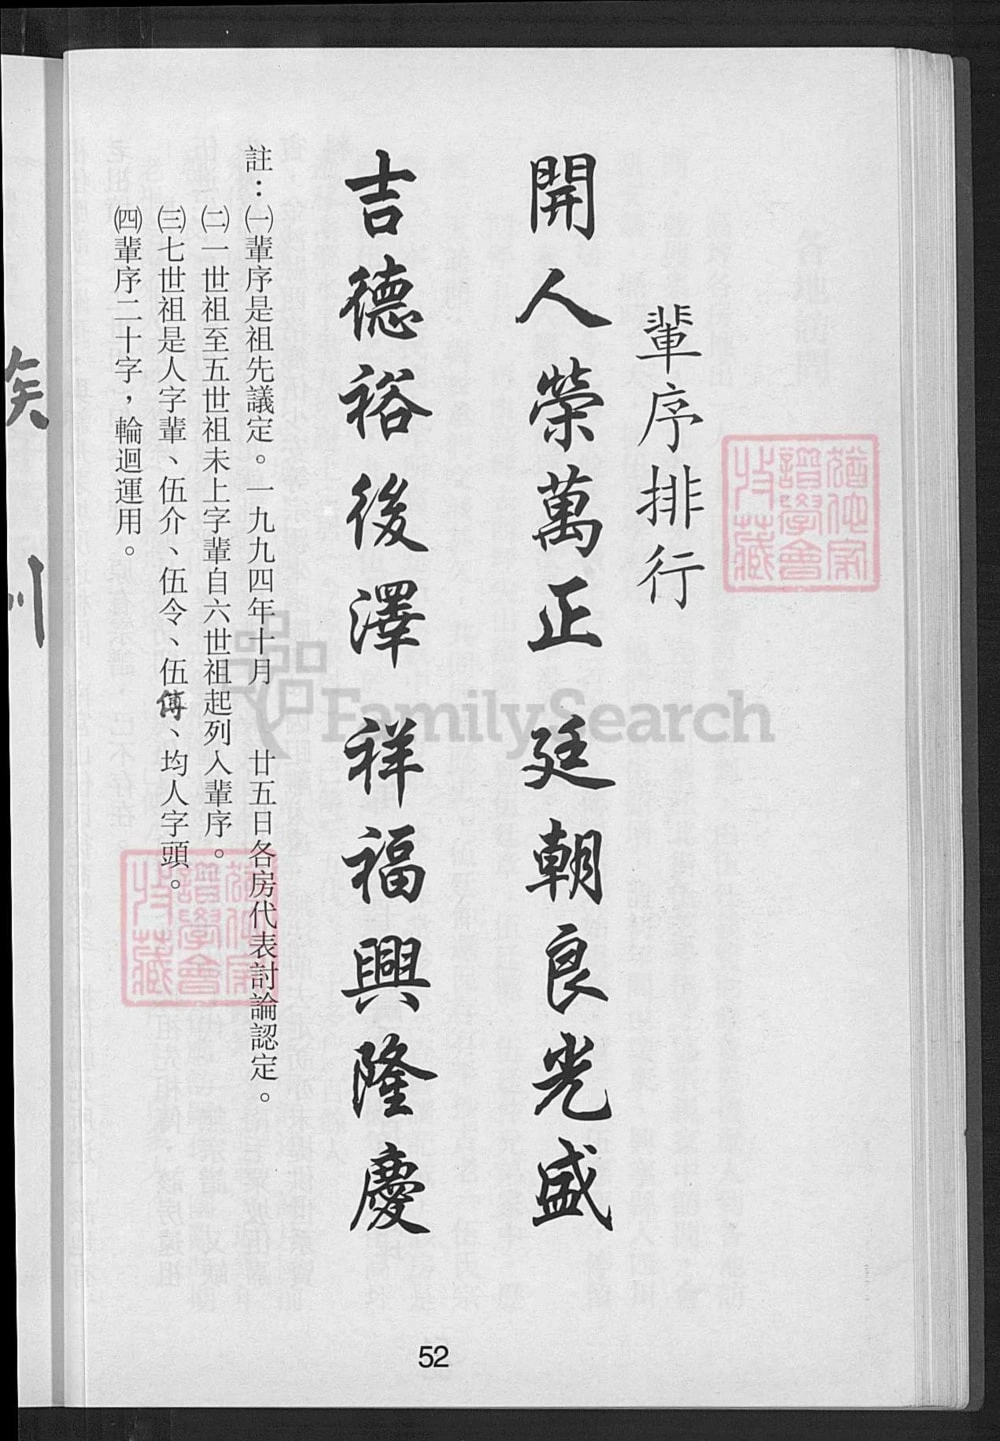 輩序排行
開人榮萬正 廷朝良光盛
吉德裕後澤 祥福興隆慶
註：㈠輩序是祖先議定。一九九四年十月 廿五日各房代表討論認定。
㈡一世祖至五世祖未上字輩自六世祖起列入輩序。
㈢七世祖是人字輩、伍介、伍令、伍傅、均人字頭。
㈣輩序二十字，輪迴運用。
52
FamilySearch
譜學會
收藏
譜學會
收藏